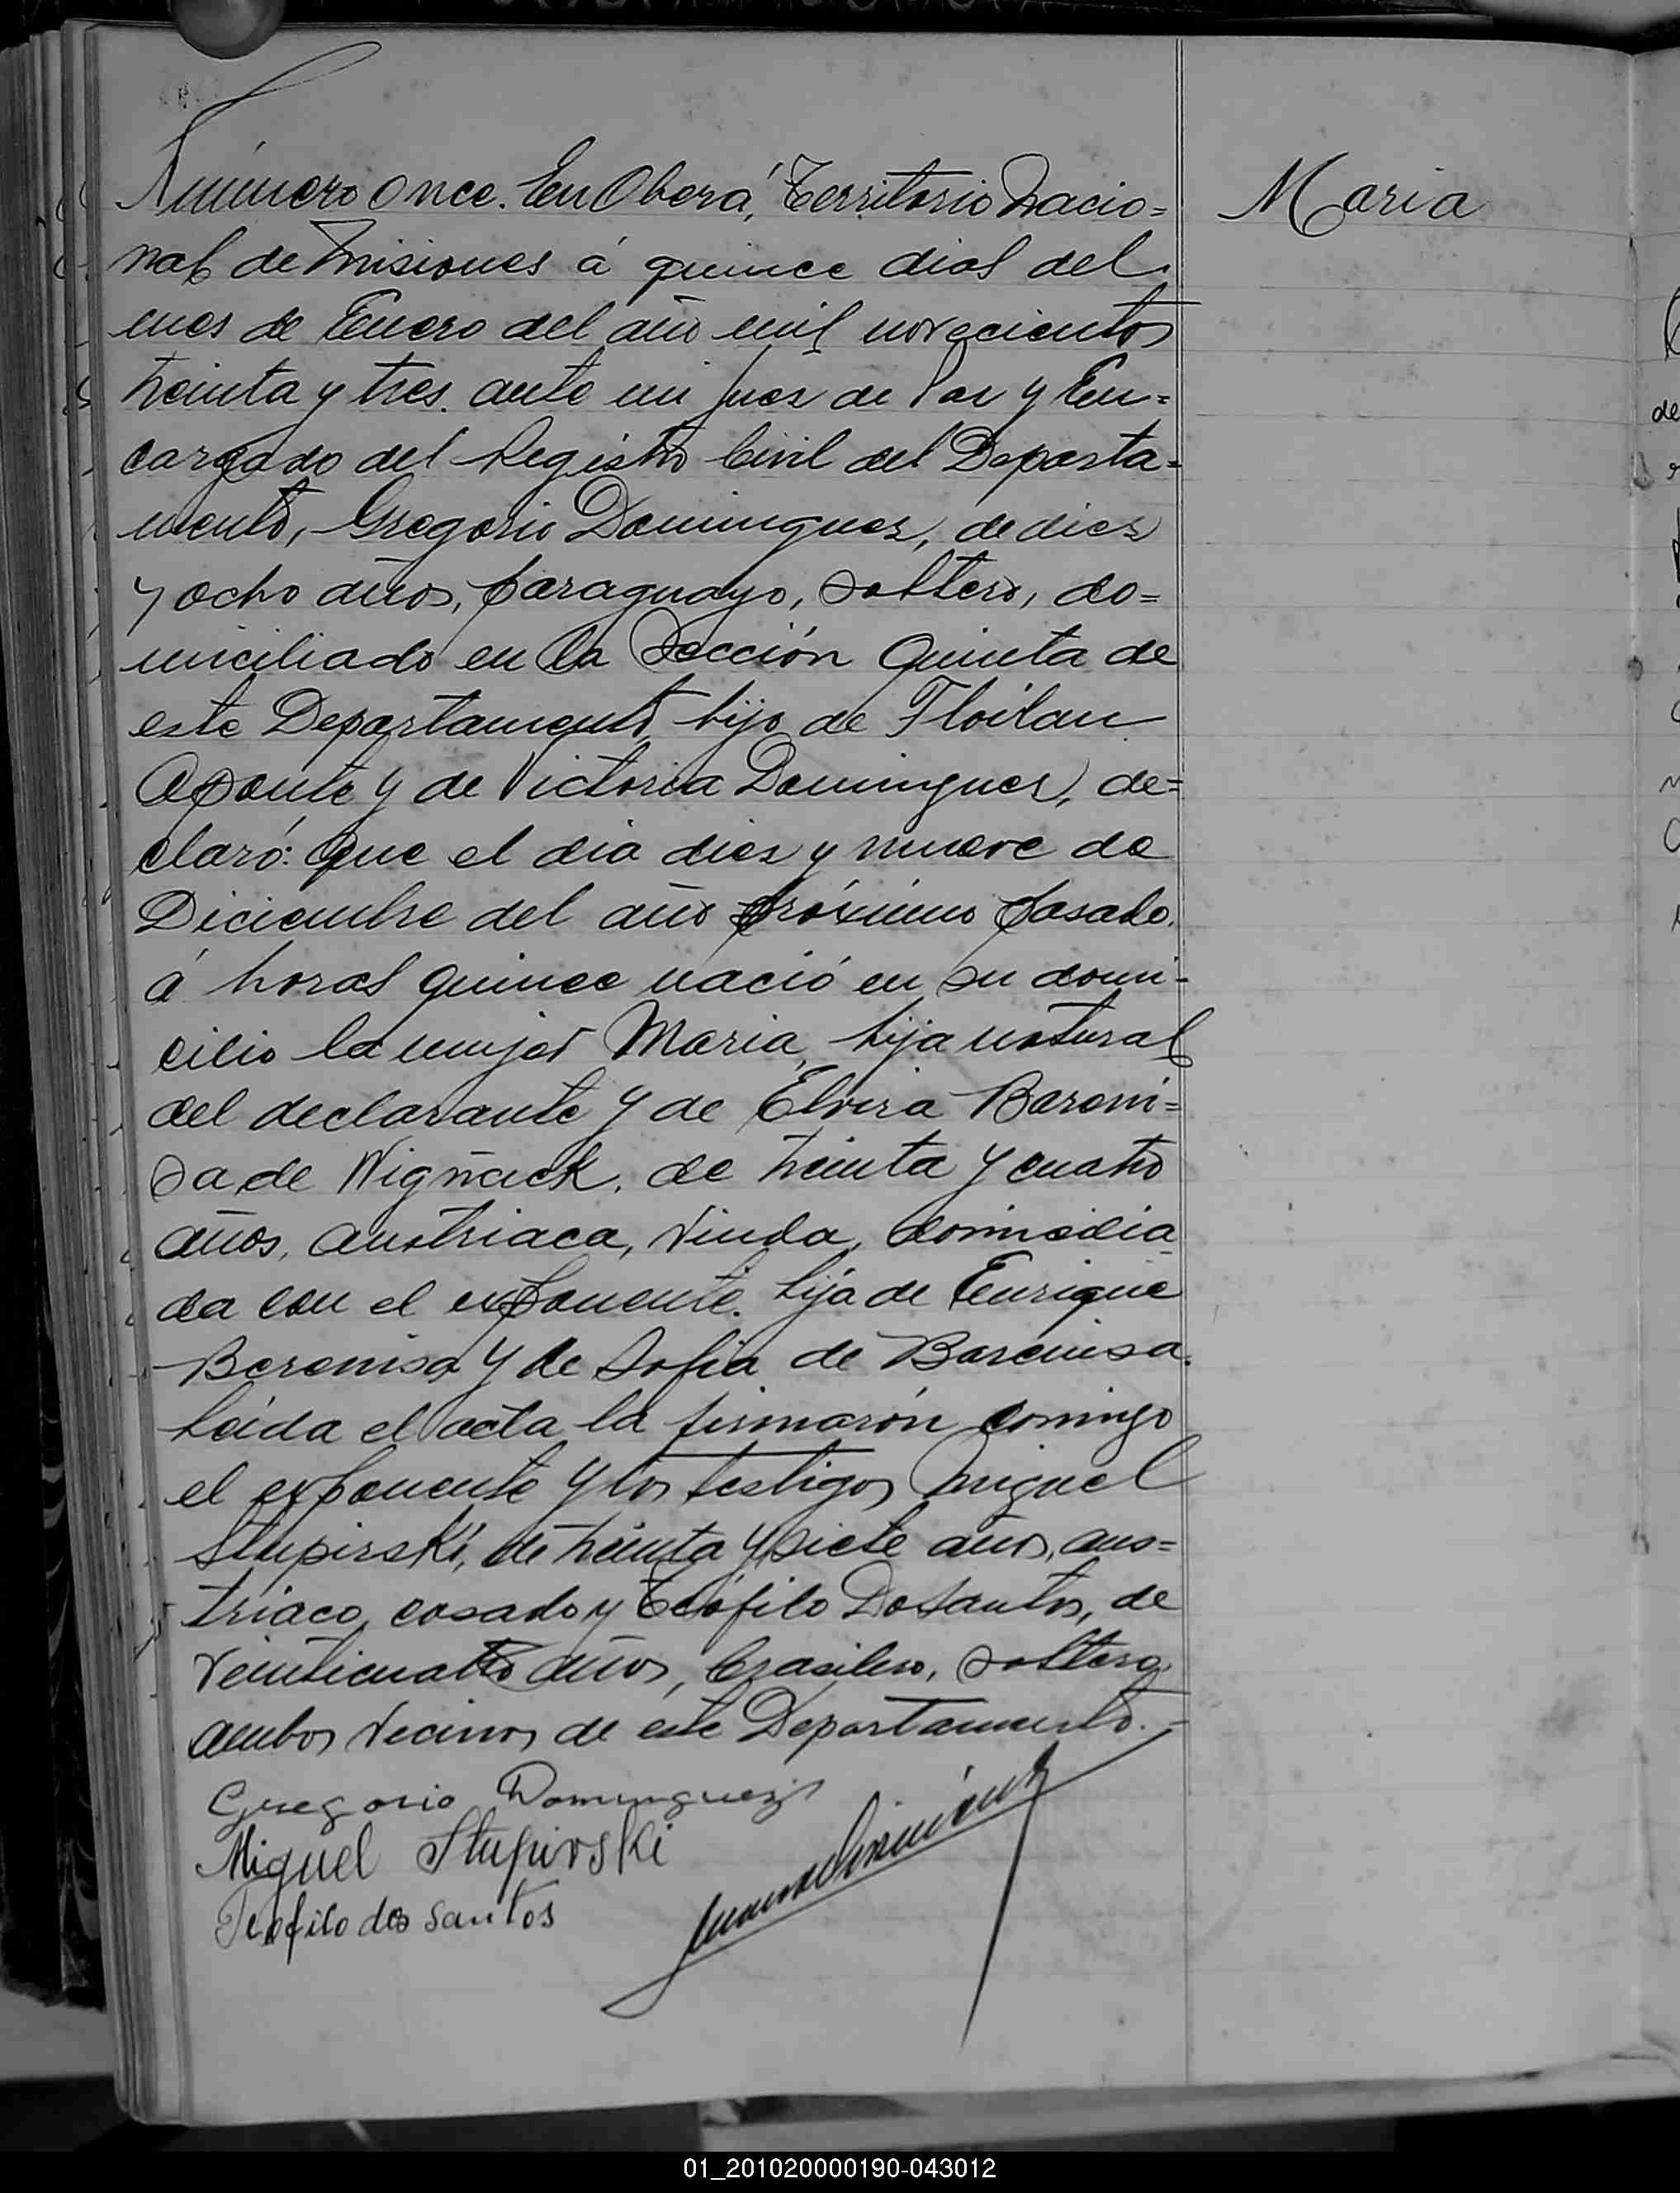 Número once. En Oberá, Territorio Nacio=
nal de Misiones á quince dias del
mes de Enero del año mil novecientos
treinta y tres. ante mi Juez de Paz y En=
cargado del Registro Civil del Departa=
mento, Gregorio Dominguez, de diez
y ocho años, paraguayo, soltero, do=
miciliado en la Sección Quinta de
este Departamento, hijo de Floilan
Aponte y de Victoria Dominguez, de=
claró: Que el dia diez y nueve de
Diciembre del año próximo pasado,
á horas quince nació en su domi-
cilio la mujer Maria, hija natural
del declarante y de Elvira Baroni=
sa de Wigñack, de treinta y cuatro
años, austriaca, viuda, domicilia
da con el exponente. hija de Enrique
Beronisa y de Sofia de Baronisa.
Leida el acta la firmarón conmigo
el exponente y los testigos Miguel
Stupirski, de treinta y siete años, aus=
triaco, casado y Teófilo Dosantos, de
veinticuatro años, brasilero, soltero,
ambos vecinos de este Departamento.-
Gregorio Dominguez
Miguel Stupirski
Teofilo dos Santos
Maria
de
01_201020000190-043012